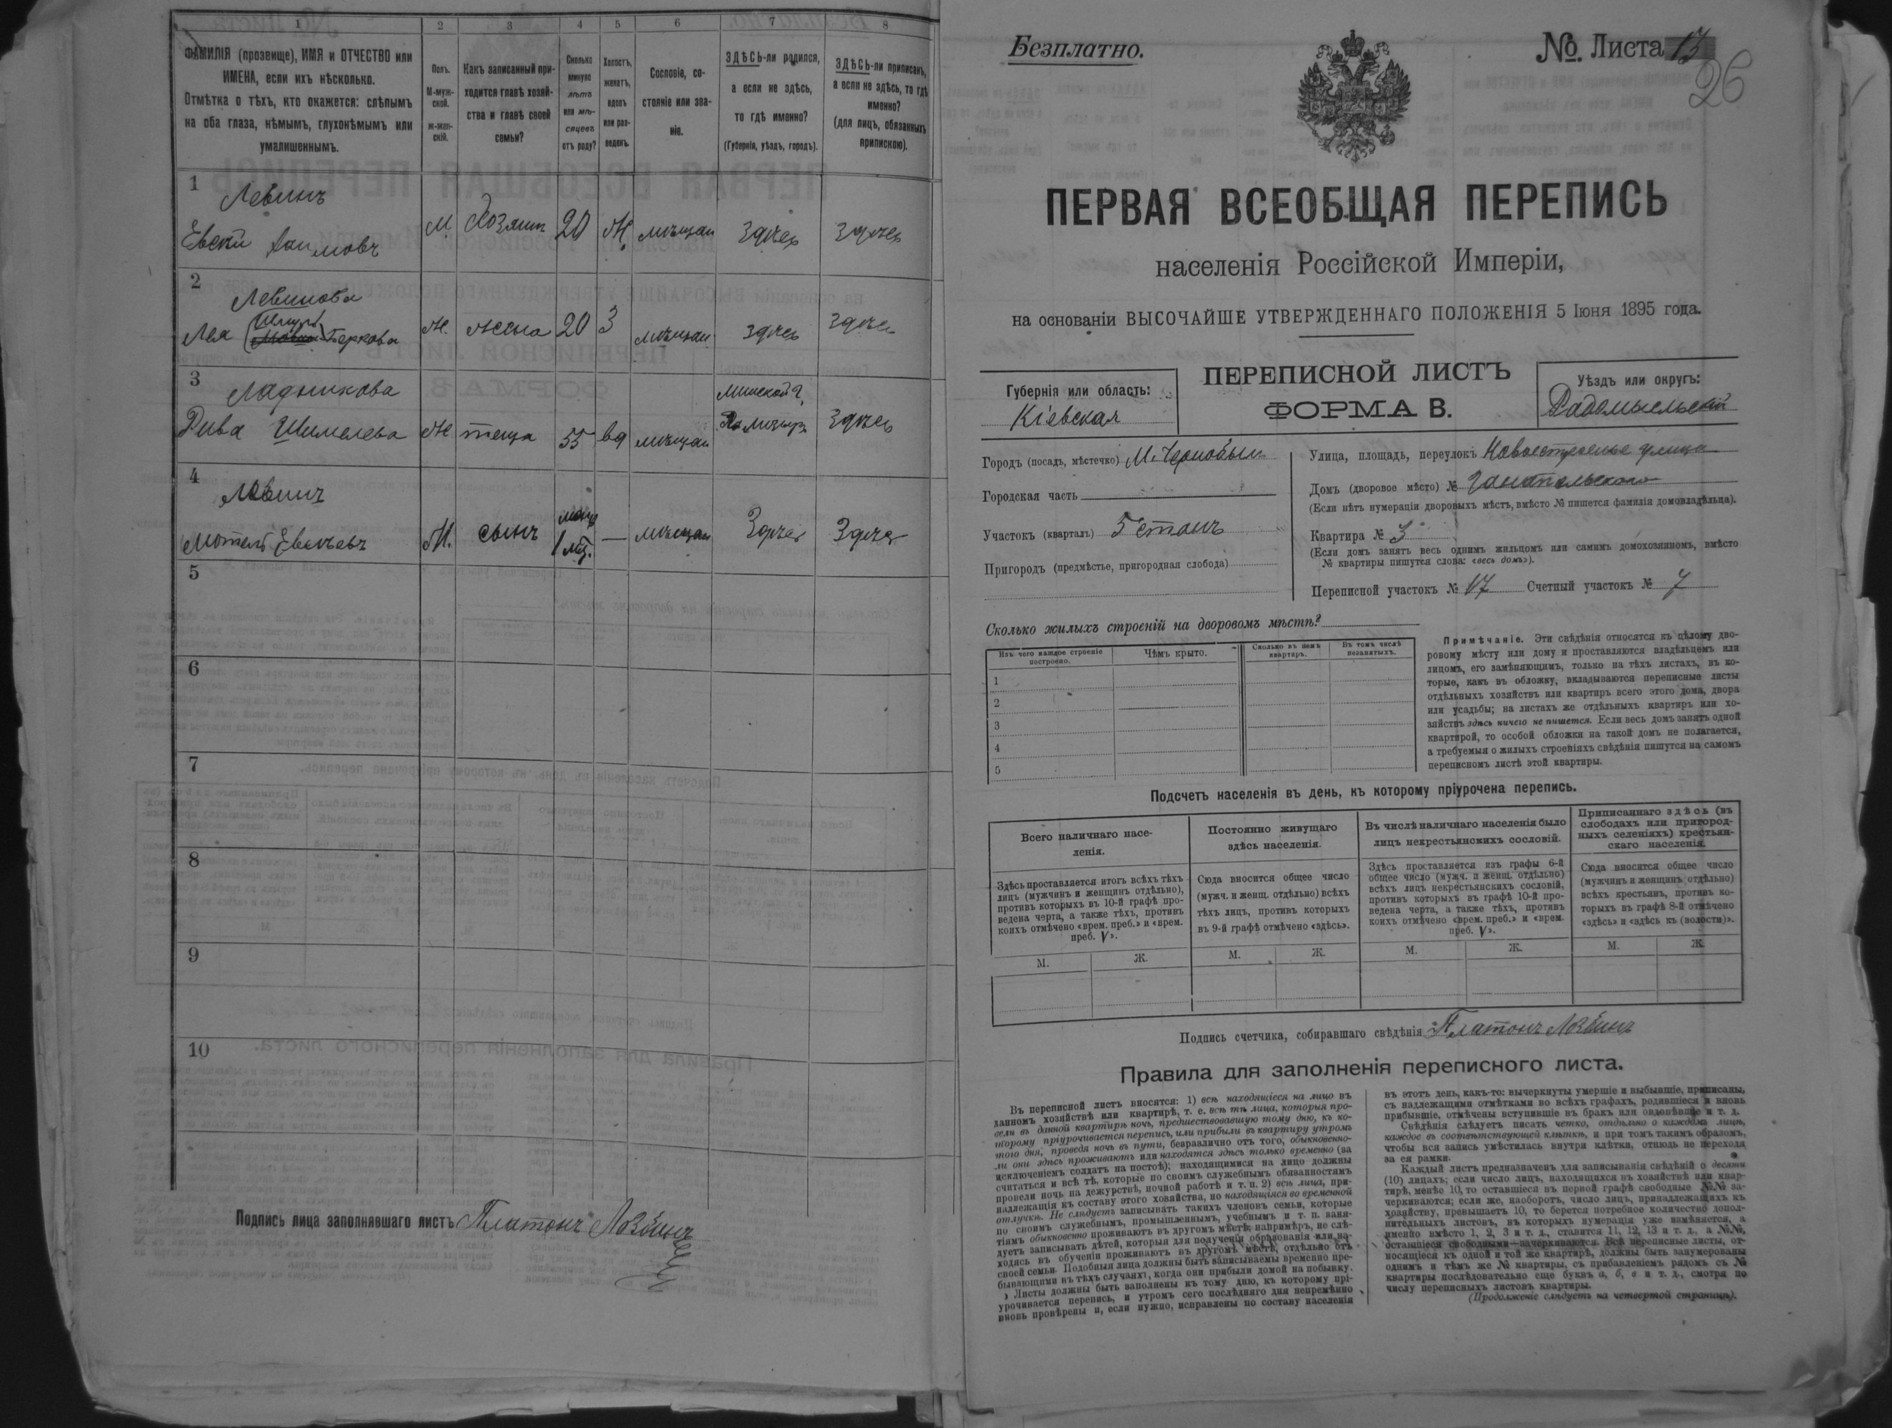 1
2
3
4
5
6
7
8
ФАМИЛІЯ (прозвище), ИМЯ и ОТЧЕСТВО или
ИМЕНА, если ихъ нѣсколько.
Отмѣтка о тѣхъ, кто окажется: слѣпымъ
на оба глаза, нѣмымъ, глухонѣмымъ или
умалишеннымъ.
Полъ.
М-муж-
ской.
ж-жен-
скій.
Какъ записанный при-
ходится главѣ хозяй-
ства и главѣ своей
семьи?
Сколько
минуло
лѣтъ
или мѣ-
сяцевъ
отъ роду?
Холостъ,
женатъ,
вдовъ
или раз-
веденъ.
Сословіе, со-
стояніе или зва-
ніе.
ЗДѢСЬ-ли родился,
а если не здѣсь,
то гдѣ именно?
(Губернія, уѣздъ, городъ).
ЗДѢСЬ-ли приписанъ,
а если не здѣсь, то гдѣ
именно?
(для лицъ, обязанныхъ
припискою).
1
Левинъ
М. Хозяинъ 20 Ж. мѣщан здѣсь здѣсь
2
Левинова
Лея Беркова ж. жена 20 З мѣщан здѣсь здѣсь
3
Ладникова
Рива Шмилева ж теща 55 вд мѣщан здѣсь
Минской г,
4
Левинъ
М. сынъ 1 мѣс. — мѣщан Здѣсь Здѣсь
5
6
7
8
9
10
Подпись лица заполнявшаго листъ Платонъ Лозбинъ
Безплатно.
№ Листа 13
26
ПЕРВАЯ ВСЕОБЩАЯ ПЕРЕПИСЬ
населенія Россійской Имперіи,
на основаніи ВЫСОЧАЙШЕ УТВЕРЖДЕННАГО ПОЛОЖЕНІЯ 5 Іюня 1895 года.
Губернія или область:
Кіевская
ПЕРЕПИСНОЙ ЛИСТЪ
ФОРМА В.
Уѣздъ или округъ:
Радомысльскій
Городъ (посадъ, мѣстечко) М. Чернобыль
Городская часть
Участокъ (кварталъ) 5 станъ
Пригородъ (предмѣстье, пригородная слобода)
Улица, площадь, переулокъ Новостроенье улица
Домъ (дворовое мѣсто) №
(Если нѣтъ нумераціи дворовыхъ мѣстъ, вмѣсто № пишется фамилія домовладѣльца).
Квартира № 3
(Если домъ занятъ весь однимъ жильцомъ или самимъ домохозяиномъ, вмѣсто
№ квартиры пишутся слова: «весь домъ»).
Переписной участокъ № 17 Счетный участокъ № 7
Сколько жилыхъ строеній на дворовомъ мѣстѣ?
Изъ чего каждое строеніе
построено.
Чѣмъ крыто.
Сколько въ немъ
квартиръ.
Въ томъ числѣ
незанятыхъ.
1
2
3
4
5
Примѣчаніе. Эти свѣдѣнія относятся къ цѣлому дво-
ровому мѣсту или дому и проставляются владѣльцемъ или
лицомъ, его замѣняющимъ, только на тѣхъ листахъ, въ ко-
торые, какъ въ обложку, вкладываются переписные листы
отдѣльныхъ хозяйствъ или квартиръ всего этого дома, двора
или усадьбы; на листахъ же отдѣльныхъ квартиръ или хо-
зяйствъ здѣсь ничего не пишется. Если весь домъ занятъ одной
квартирой, то особой обложки на такой домъ не полагается,
а требуемыя о жилыхъ строеніяхъ свѣдѣнія пишутся на самомъ
переписномъ листѣ этой квартиры.
Подсчетъ населенія въ день, къ которому пріурочена перепись.
Всего наличнаго насе-
ленія.
Постоянно живущаго
здѣсь населенія.
Въ числѣ наличнаго населенія было
лицъ некрестьянскихъ сословій.
Приписаннаго здѣсь (въ
слободахъ или пригород-
ныхъ селеніяхъ) крестьян-
скаго населенія.
Здѣсь проставляется итогъ всѣхъ тѣхъ
лицъ (мужчинъ и женщинъ отдѣльно),
противъ которыхъ въ 10-й графѣ про-
ведена черта, а также тѣхъ, противъ
коихъ отмѣчено «врем. преб.» и «врем.
преб. V».
Сюда вносится общее число
(мужч. и женщ. отдѣльно) всѣхъ
тѣхъ лицъ, противъ которыхъ
въ 9-й графѣ отмѣчено «здѣсь».
Здѣсь проставляется изъ графы 6-й
общее число (мужч. и женщ. отдѣльно)
всѣхъ лицъ некрестьянскихъ сословій,
противъ которыхъ въ графѣ 10-й про-
ведена черта, а также тѣхъ, противъ
коихъ отмѣчено «врем. преб.» и «врем.
преб. V».
Сюда вносится общее число
(мужчинъ и женщинъ отдѣльно)
всѣхъ крестьянъ, противъ ко-
торыхъ въ графѣ 8-й отмѣчено
«здѣсь» и «здѣсь къ (волости)».
М. Ж. М. Ж. М. Ж. М. Ж.
Подпись счетчика, собиравшаго свѣдѣнія Платонъ Лозбинъ
Правила для заполненія переписного листа.
Въ переписной листъ вносятся: 1) всѣ находящіеся на лицо въ
данномъ хозяйствѣ или квартирѣ, т. е. всѣ тѣ лица, которыя про-
вели въ данной квартирѣ ночь, предшествовавшую тому дню, къ ко-
торому пріурочивается перепись, или прибыли въ квартиру утромъ
того дня, проведя ночь въ пути, безразлично отъ того, обыкновенно-
ли они здѣсь проживаютъ или находятся здѣсь только временно (за
исключеніемъ солдатъ на постоѣ); находящимися на лицо должны
считаться и всѣ тѣ, которые по своимъ служебнымъ обязанностямъ
провели ночь на дежурствѣ, ночной работѣ и т. п. 2) всѣ лица, при-
надлежащія къ составу этого хозяйства, но находящіяся во временной
отлучкѣ. Не слѣдуетъ записывать такихъ членовъ семьи, которые
по своимъ служебнымъ, промышленнымъ, учебнымъ и т. п. заня-
тіямъ обыкновенно проживаютъ въ другомъ мѣстѣ; напримѣръ, не слѣ-
дуетъ записывать дѣтей, которыя для полученія образованія или на-
ходясь въ обученіи проживаютъ въ другомъ мѣстѣ, отдѣльно отъ
своей семьи. Подобныя лица должны быть записываемы временно пре-
бывающими въ тѣхъ случаяхъ, когда они прибыли домой на побывку.
Листы должны быть заполнены къ тому дню, къ которому прі-
урочивается перепись, и утромъ сего послѣдняго дня непремѣнно
вновь провѣрены и, если нужно, исправлены по составу населенія
въ этотъ день, какъ-то: вычеркнуты умершіе и выбывшіе, приписаны,
съ надлежащими отмѣтками во всѣхъ графахъ, родившіеся и вновь
прибывшіе, отмѣчены вступившіе въ бракъ или овдовѣвшіе и т. д.
Свѣдѣнія слѣдуетъ писать четко, отдѣльно о каждомъ лицѣ,
каждое въ соотвѣтствующей клѣткѣ, и при томъ такимъ образомъ,
чтобы вся запись умѣстилась внутри клѣтки, отнюдь не переходя
за ея рамки.
Каждый листъ предназначенъ для записыванія свѣдѣній о десяти
(10) лицахъ; если число лицъ, находящихся въ хозяйствѣ или квар-
тирѣ, менѣе 10, то оставшіеся въ первой графѣ свободные №№ за-
черкиваются; если же, наоборотъ, число лицъ, принадлежащихъ къ
хозяйству, превышаетъ 10, то берется потребное количество допол-
нительныхъ листовъ, въ которыхъ нумерація уже измѣняется, а
именно вмѣсто 1, 2, 3 и т. д., ставится 11, 12, 13 и т. д., а №№,
оставшіеся свободными—зачеркиваются. Всѣ переписные листы, от-
носящіеся къ одной и той же квартирѣ, должны быть занумерованы
однимъ и тѣмъ же № квартиры, съ прибавленіемъ рядомъ съ №
квартиры послѣдовательно еще буквъ а, б, в и т. д., смотря по
числу переписныхъ листовъ квартиры.
(Продолженіе слѣдуетъ на четвертой страницѣ).